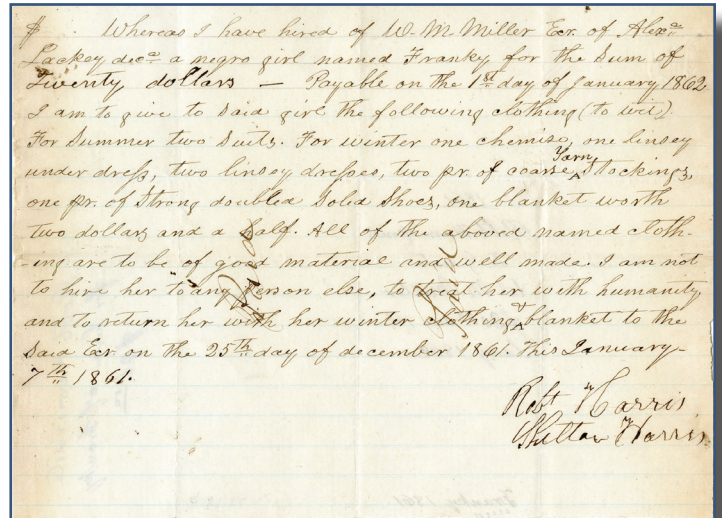 $ . Whereas I have hired of W. M. Miller Exr. of Alexr.
Lackey decd a negro girl named Franky for the Sum of
Twenty dollars — Payable on the 1st day of January 1862
I am to give to said girl the following clothing (to wit)
For Summer two Suits. For winter one chemise, one linsey
under dress, two linsey dresses, two pr. of coarse Yarn Stockings,
one pr. of Strong doubled Soled Shoes, one blanket worth
two dollars and a half. All of the aboved named cloth-
-ing are to be of good material and well made. I am not
to hire her to any person else, to treat her with humanity,
and to return her with her winter clothing & blanket to the
said Exr. on the 25th day of december 1861. This January-
7th 1861.
Robt Harris
Harris